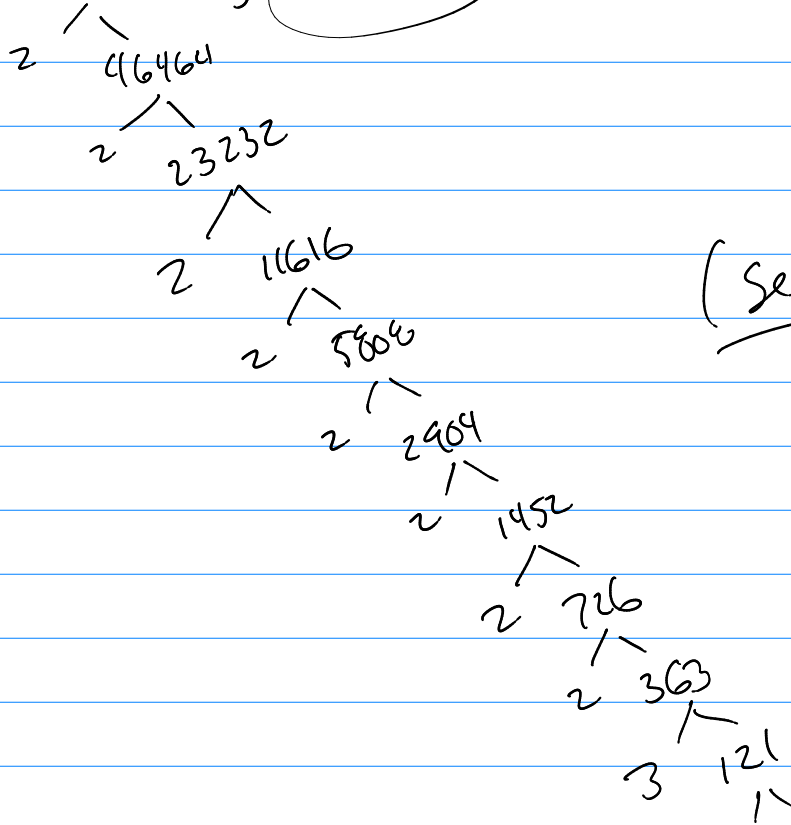 2 46464
2 23232
2 11616
2 5808
2 2904
2 1452
2 726
2 363
3 121